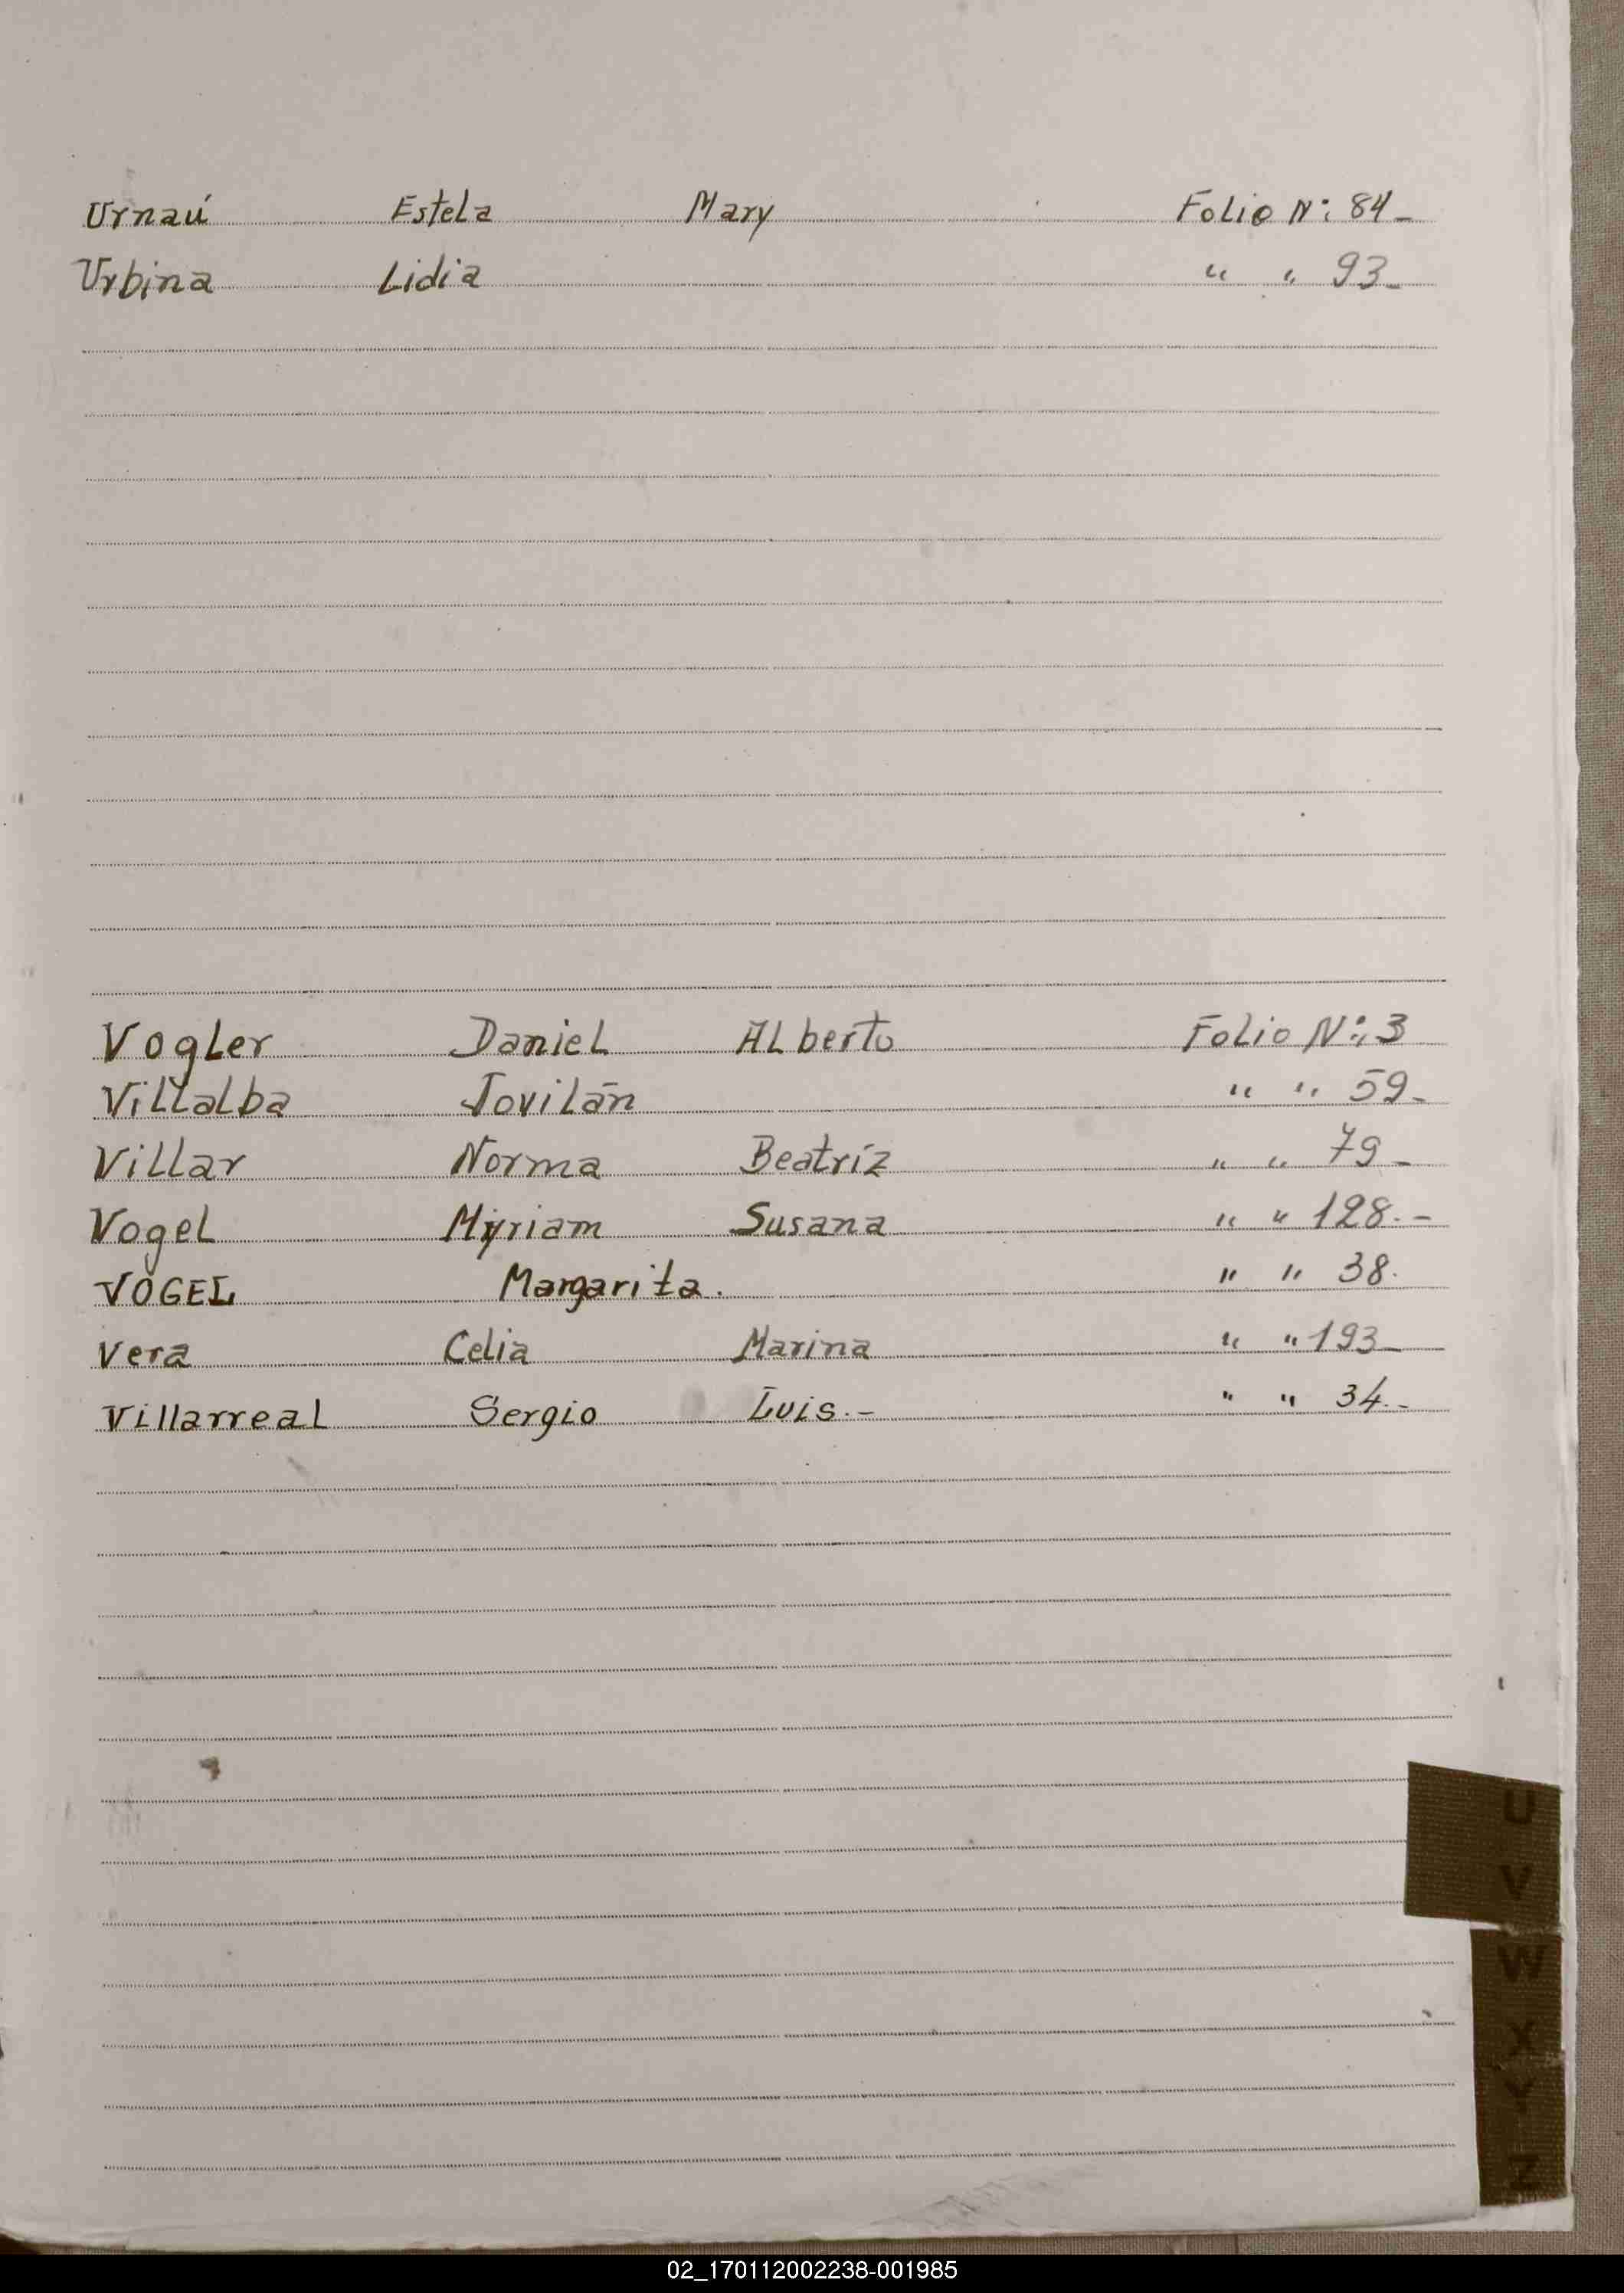 Urnaú Estela Mary Folio N: 84-
Urbina Lidia " " 93-
Vogler Daniel Alberto Folio N: 3
Villalba Jovilán " " 59-
Villar Norma Beatríz " " 79-
Vogel Myriam Susana " " 128.-
VOGEL Margarita. " " 38.
Vera Celia Marina " " 193-
Villarreal Sergio Luis.- " " 34.-
U
V
W
X
Y
Z
02_170112002238-001985